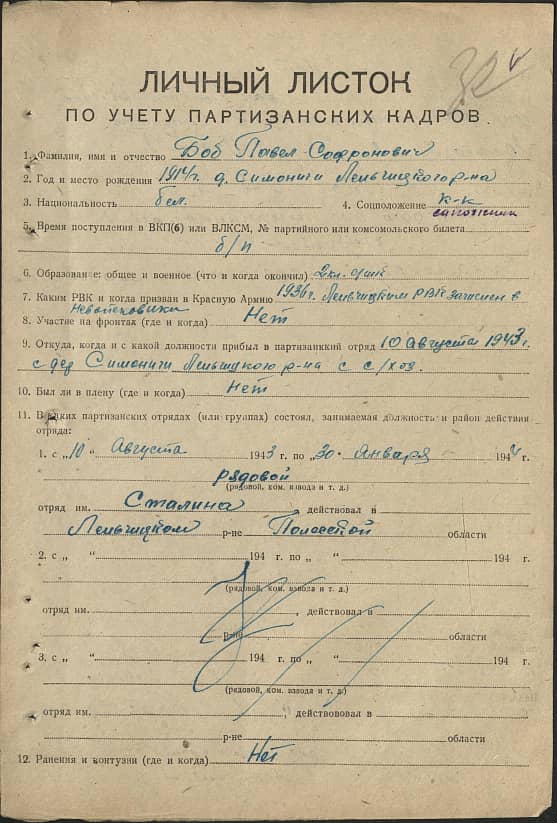 32
ЛИЧНЫЙ ЛИСТОК
ПО УЧЕТУ ПАРТИЗАНСКИХ КАДРОВ
1. Фамилия, имя и отчество Боб Павел Софронович
2. Год и место рождения 1914г. д. Симоничи Лельчицкого р-на
3. Национальность бел. 4. Соцположение к-к
сапожник
5. Время поступления в ВКП(б) или ВЛКСМ, № партийного или комсомольского билета
б/п
6. Образование: общее и военное (что и когда окончил) 2кл.
7. Каким РВК и когда призван в Красную Армию 1936г. Лельчицким РВК зачислен в
8. Участие на фронтах (где и когда) Нет
9. Откуда, когда и с какой должности прибыл в партизанкий отряд 10 Августа 1943г.
с дер Симоничи Лельчицкого р-на с с/хоз.
10. Был ли в плену (где и когда) Нет
11. В каких партизанских отрядах (или группах) состоял, занимаемая должность и район действия
отряда:
1. с „10" Августа 1943 г. по „30" Января 1944 г.
рядовой
(рядовой, ком. взвода и т. д.)
отряд им. Сталина, действовал в
Лельчицком р-не Полесской области
2. с „ " 194 г. по „ " 194 г.
(рядовой, ком. взвода и т. д.)
отряд им. , действовал в
р-не области
3. с „ " 194 г. по „ " 194 г.
(рядовой, ком. взвода и т. д.)
отряд им. , действововал в
р-не области
12. Ранения и контузии (где и когда) Нет